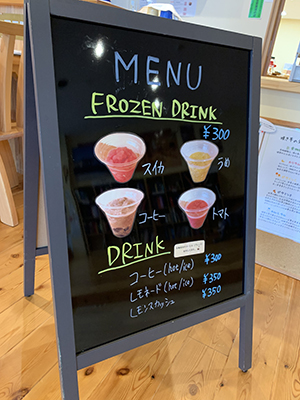 MENU
FROZEN DRINK
¥300
スイカ
うめ
コーヒー
トマト
DRINK
コーヒー(hot/ice) ¥300
レモネード(hot/ice) ¥350
レモンスカッシュ ¥350